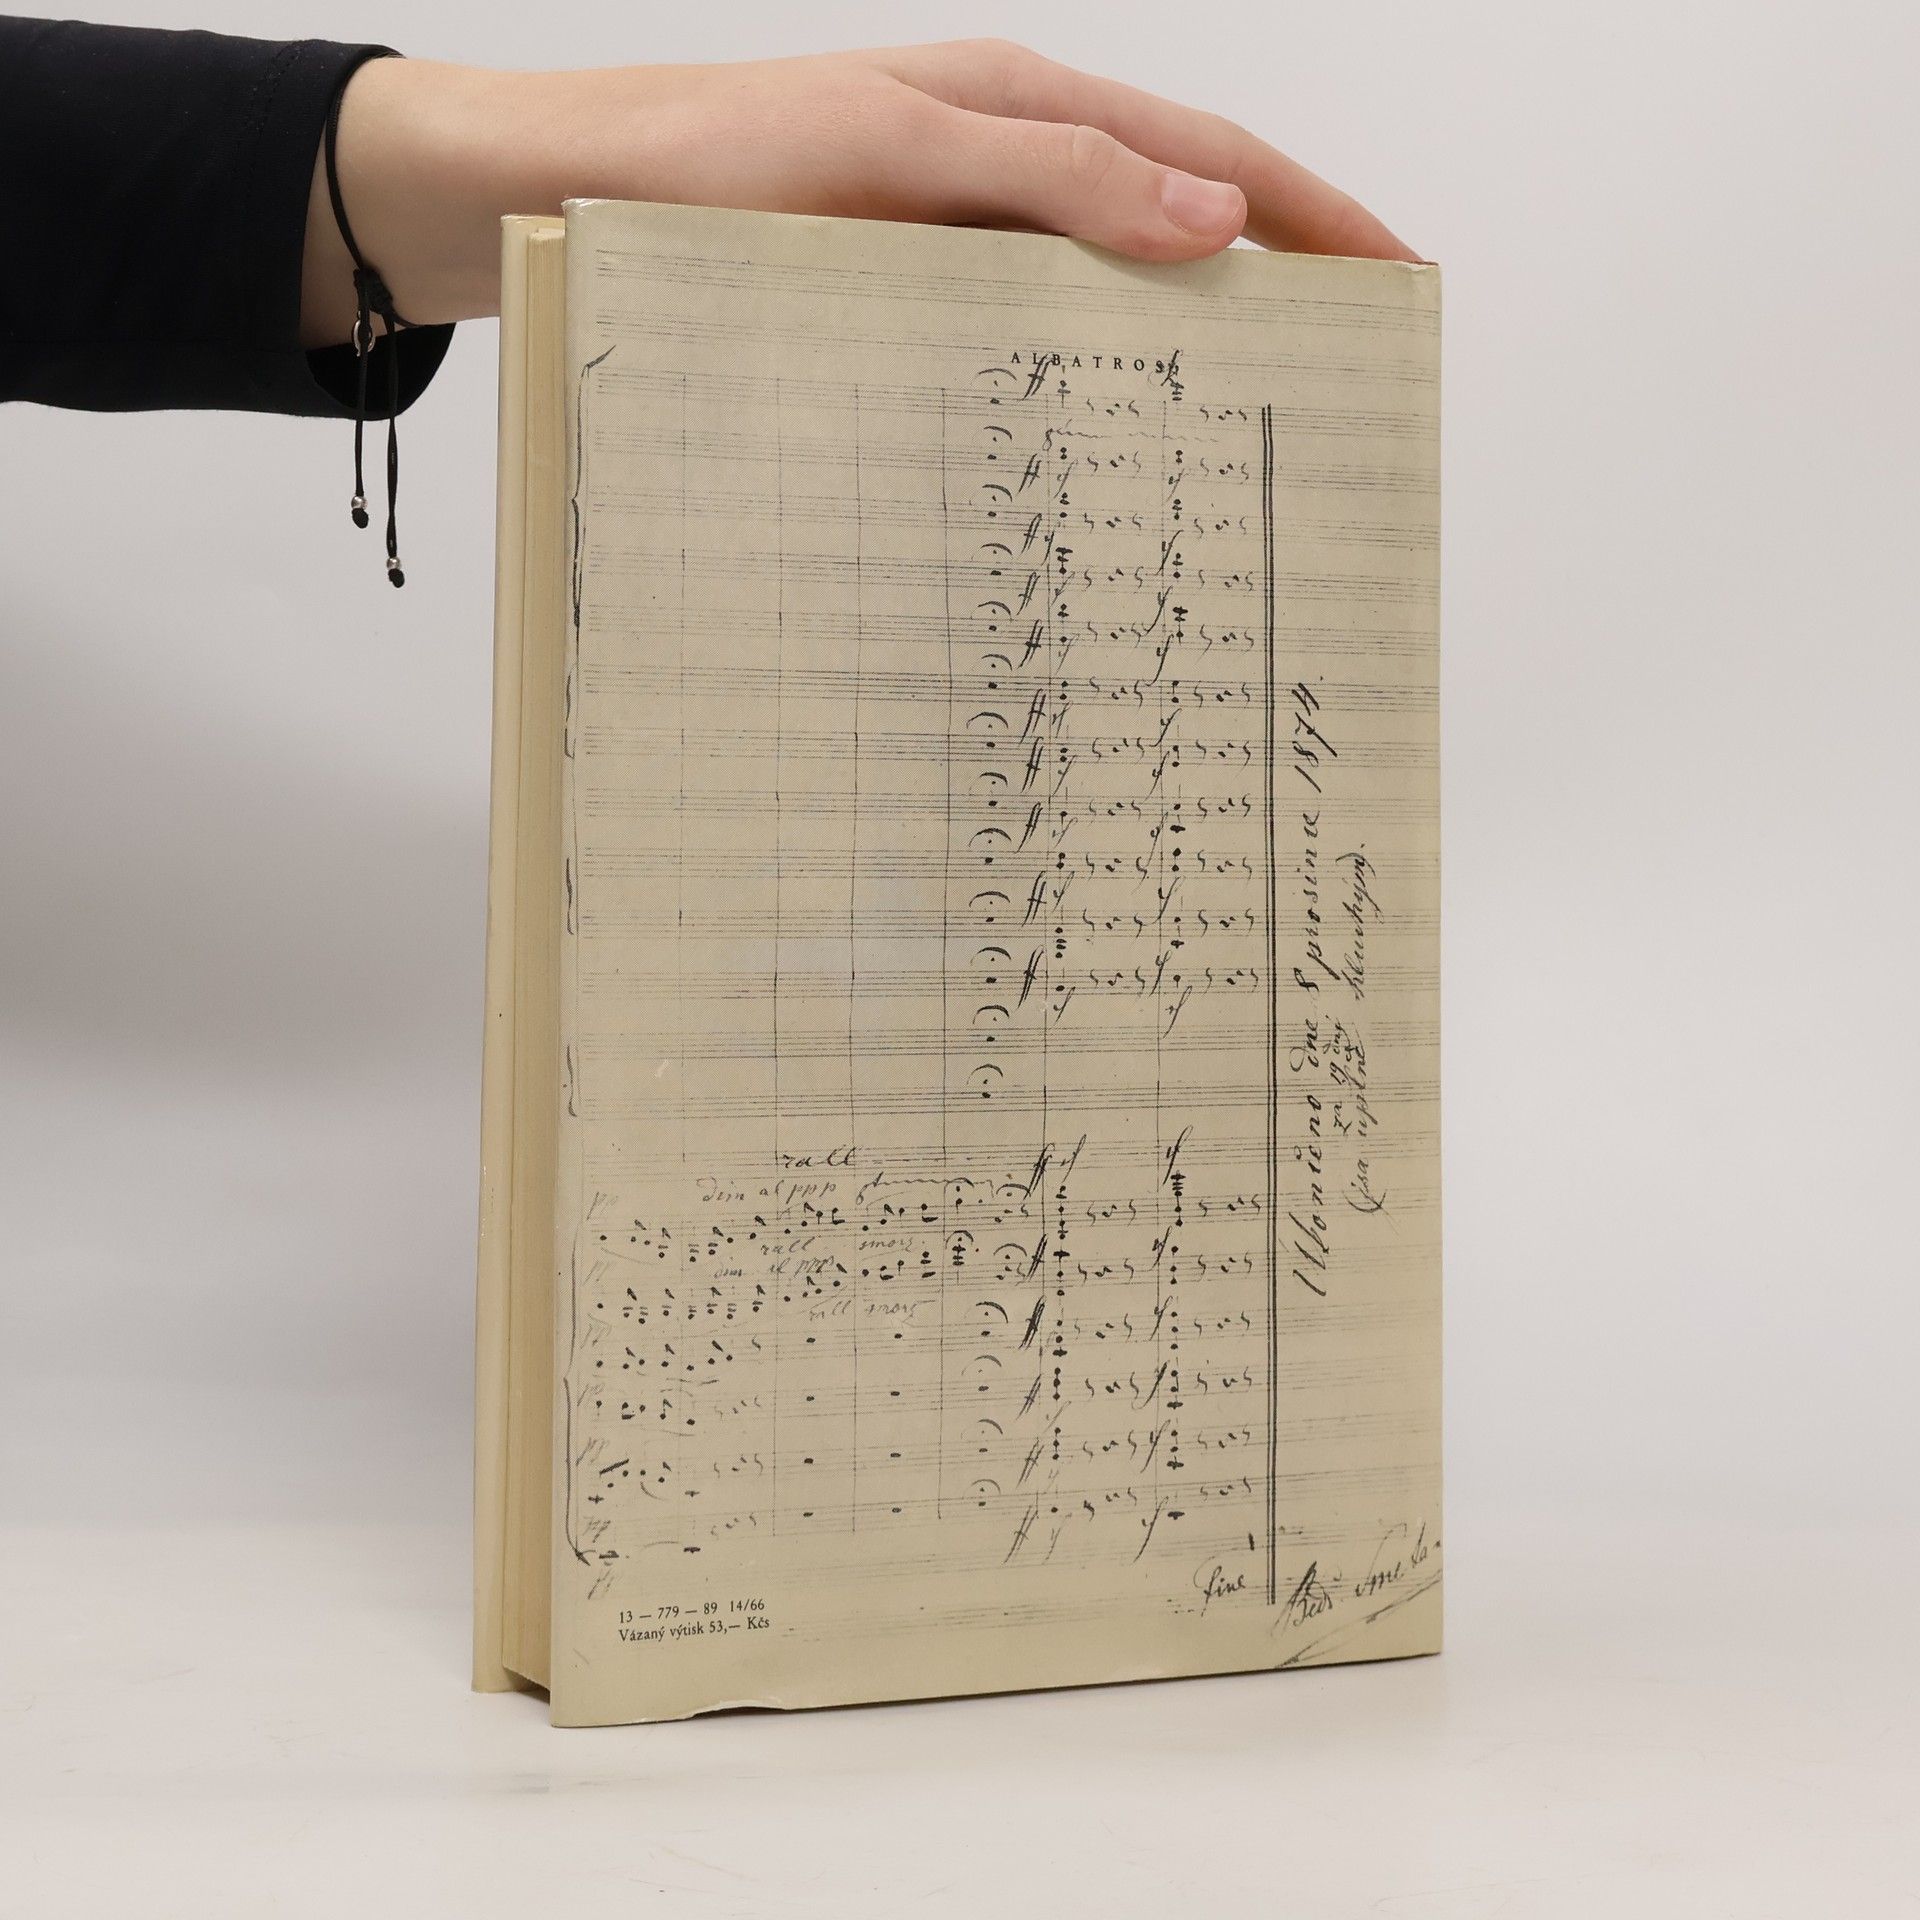 ALBATROS
rall
dim al ppp
rall smorz.
dim al ppp
rall smorz
fine
Vhonieno dne 8 prosince 1874.
za 19 dní
jsa úplně hluchým.
Bedř Smetana
13 — 779 — 89 14/66
Vázaný výtisk 53,— Kčs